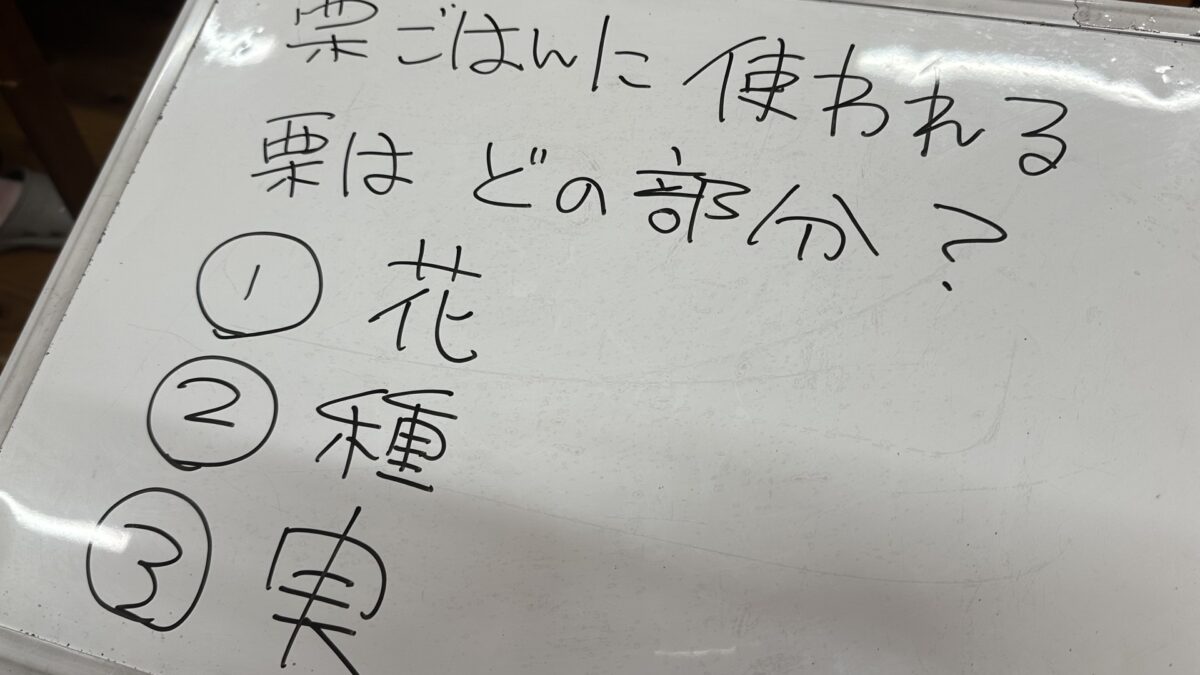 栗ごはんに使われる
栗はどの部分?
① 花
② 種
③ 実